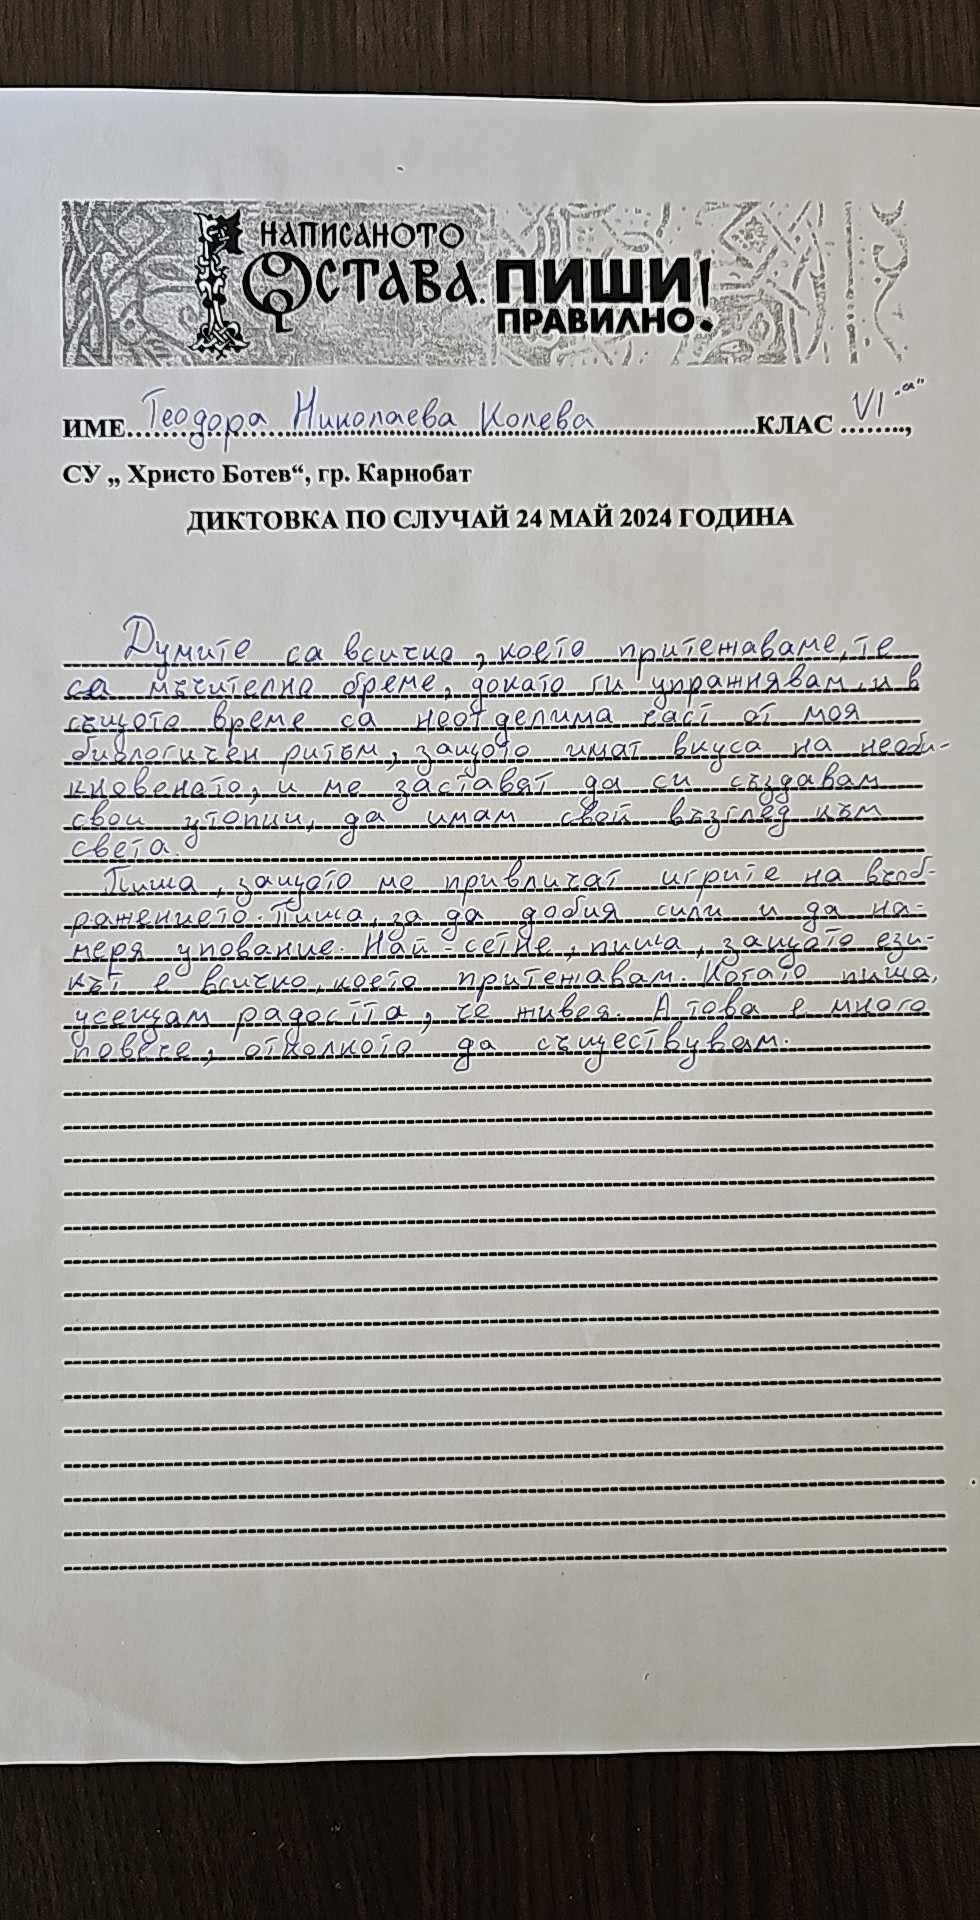 НАПИСАНОТО
ОСТАВА. ПИШИ
ПРАВИЛНО!
ИМЕ Теодора Николаева Колева КЛАС VI "а",
СУ „ Христо Ботев“, гр. Карнобат
ДИКТОВКА ПО СЛУЧАЙ 24 МАЙ 2024 ГОДИНА
Думите са всичко, което притежаваме, те
са мъчително бреме, докато ги упражнявам, и в
същото време са неотделима част от моя
биологичен ритъм, защото имат вкуса на необи-
кновеното, и ме заставят да си създавам
свои утопии, да имам свой възглед към
света.
Пиша, защото ме привличат игрите на въоб-
ражението. Пиша, за да добия сили и да на-
меря упование. Най-сетне, пиша, защото ези-
кът е всичко, което притежавам. Когато пиша,
усещам радостта, че живея. А това е много
повече, отколкото да съществувам.